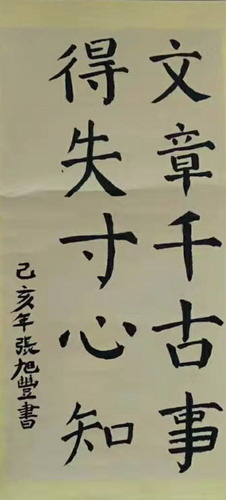 文章千古事
得失寸心知
己亥年張旭豐書